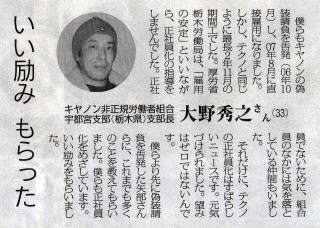 いい励み もらった
キヤノン非正規労働者組合
宇都宮支部(栃木県)支部長
大野秀之さん(33)
僕らもキヤノンの偽
装請負を告発(06年10
月)し、07年8月に直
接雇用になりました。
しかし、テクノと同じ
ように最長2年11カ月の
期間工でした。厚労省
栃木労働局は、「雇用
の安定」といいなが
ら、正社員化の指導を
しませんでした。正社
員でないために、組合
員のなかには気を落と
している仲間もいまし
た。
それだけに、テクノ
の正社員化はすばらし
いニュースです。元気
づけられました。望み
はゼロではないんで
す。
僕らより先に偽装請
負を告発した矢部さん
らに、これまでも多く
のことを教えてもらい
ました。僕らも正社員
化をめざしています。
いい励みをもらいまし
た。